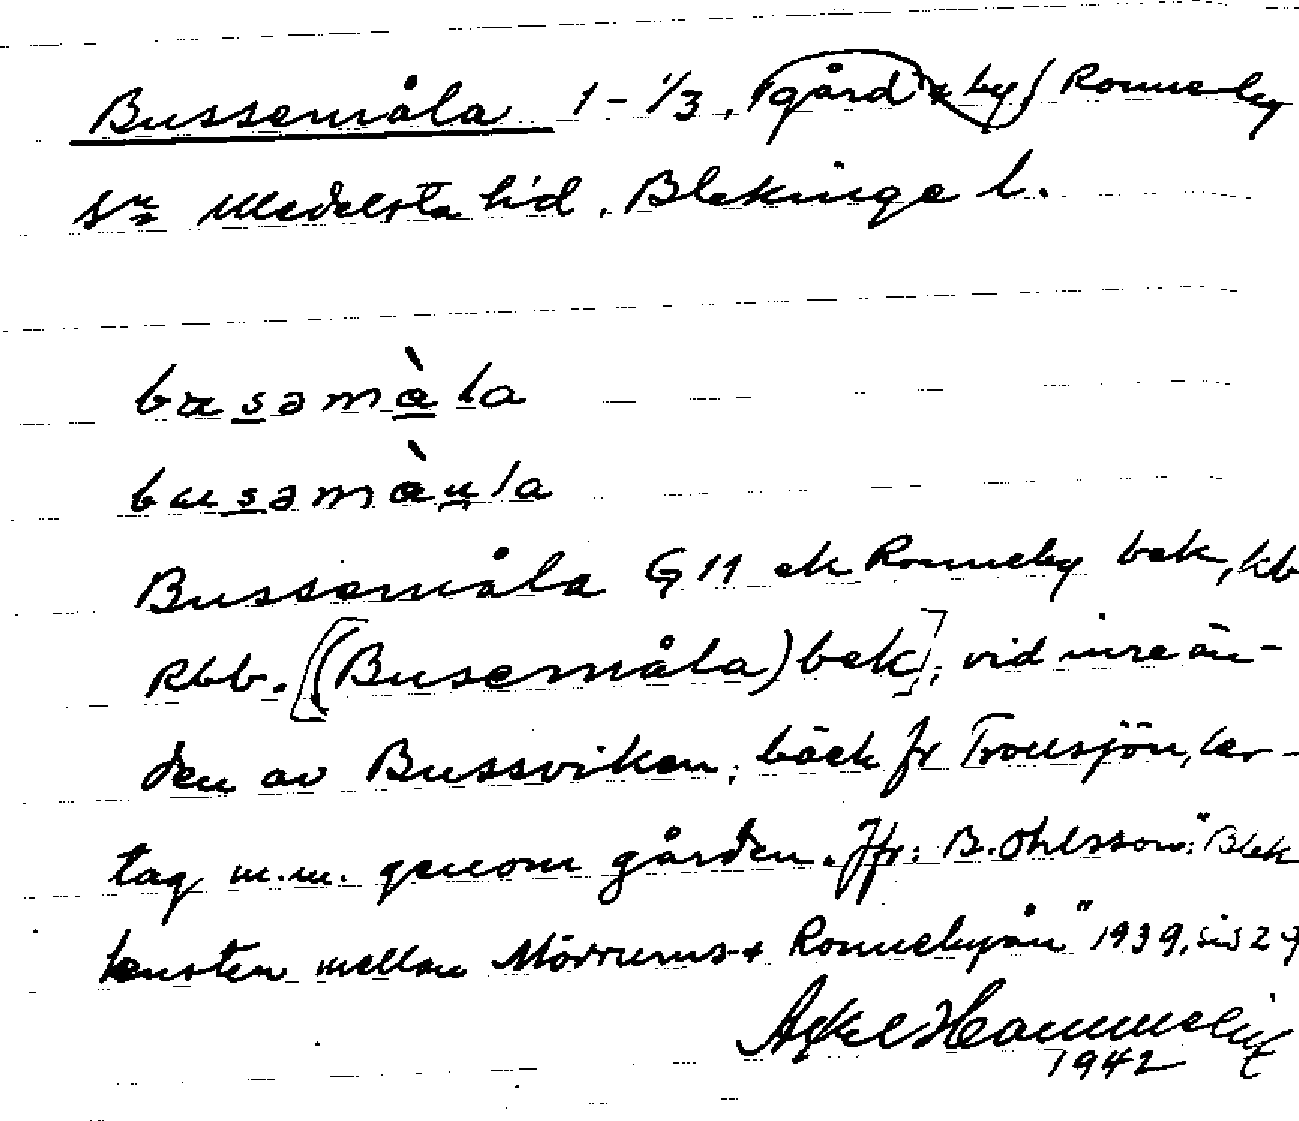 Bussemåla 1-1/3, gård & by Ronneby
sn Medelsta hd. Blekinge l.
busəmàla
busəmàula
Bussemåla G 11 ek Ronneby bek, kb
Rbb. [(Busemåla) bek], vid inre än-
den av Bussviken; bäck fr Tromsjön, ler-
tag m.m. genom gården. Jfr: B. Ohlsson: "Blek
kusten mellan Mörrums- & Ronnebyån" 1939, sid 29
Axel Hammelin
1942